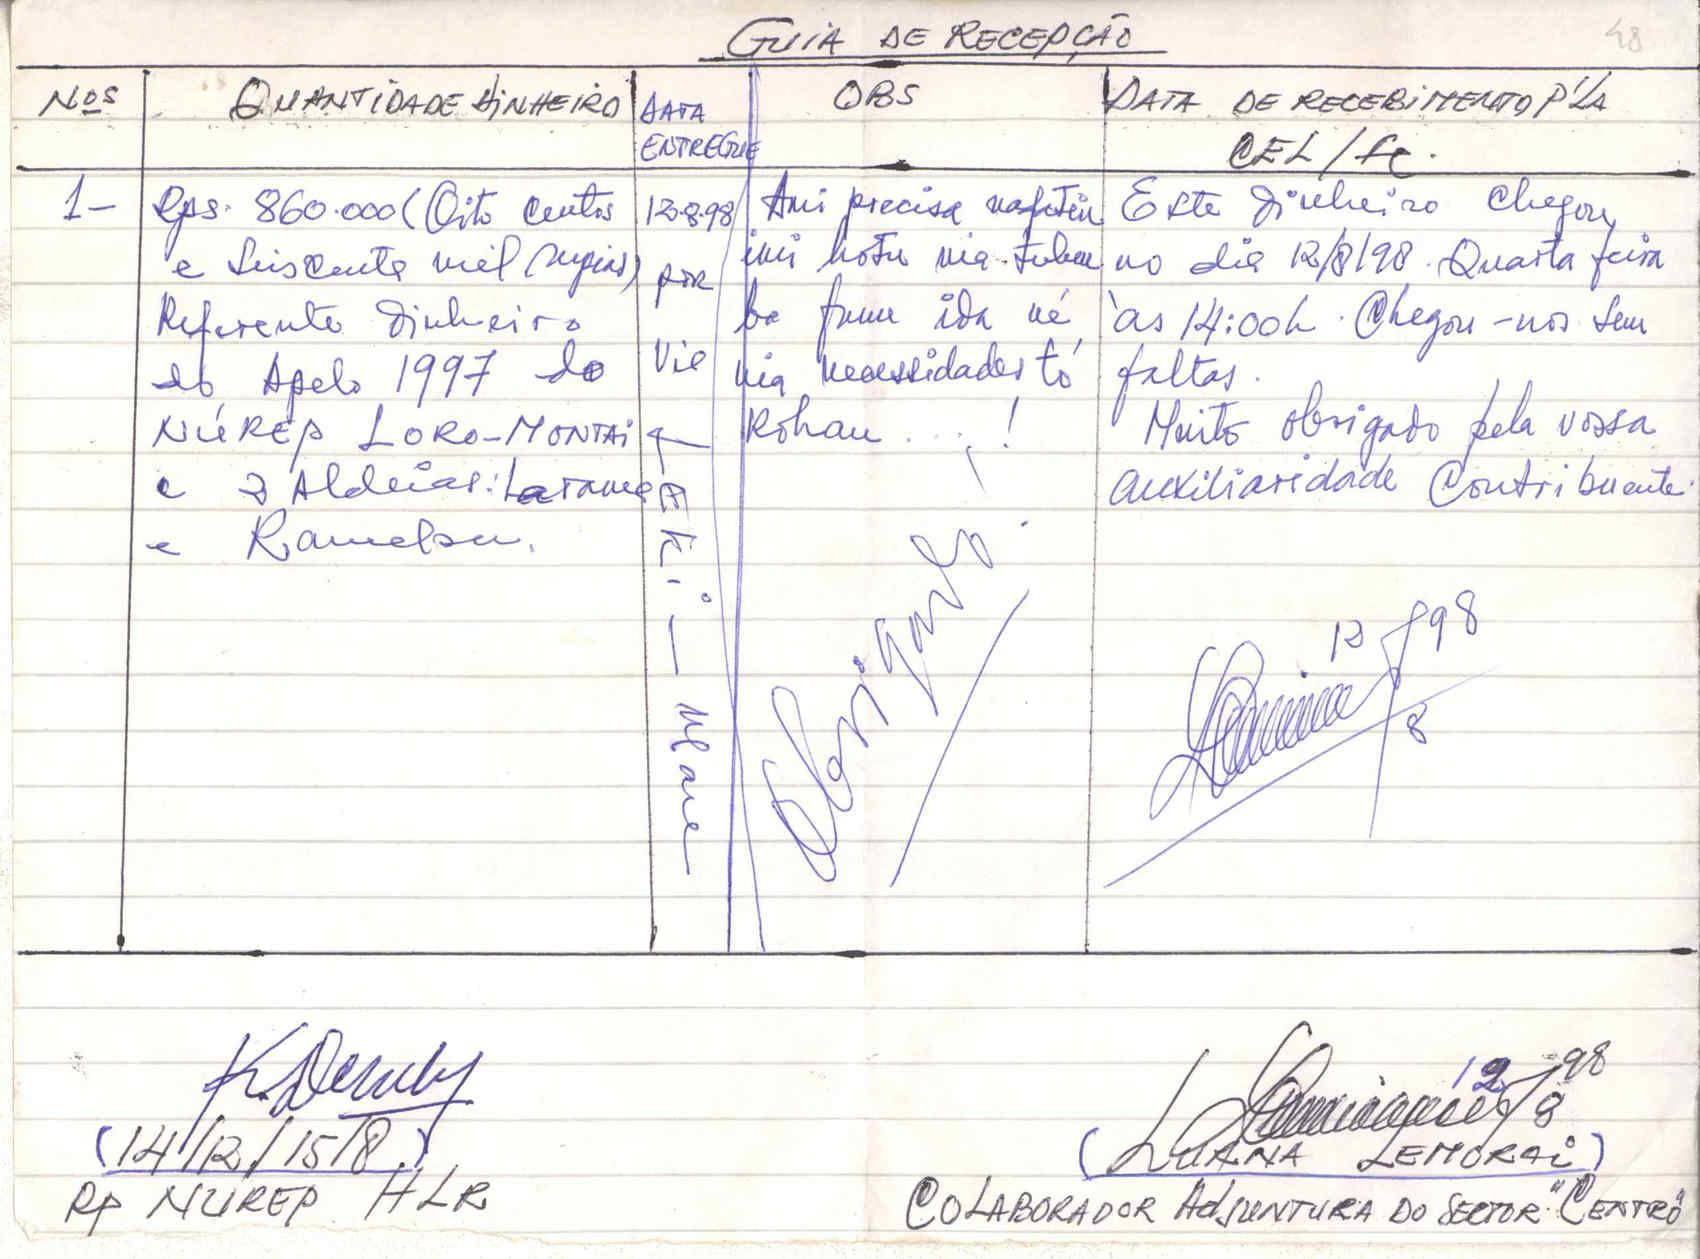 GUIA DE RECEPÇÃO
48
Nos
QUANTIDADE DINHEIRO
DATA
ENTREGUE
OBS
DATA DE RECEBIMENTO P'LA
CEL/FC.
1-
Rps. 860.000 (Oito centos
e seiscenta mil rupias)
Referente dinheiro
do Apelo 1997 do
NÚREP LORO-MONTAI
e 2 Aldeias:
e
12.8.98
por
via
Ami precisa
imi hotu nia
ba
nia necessidades tó
Rohan....!
Obrigado!
Este dinheiro chegou
no dia 12/8/98. Quarta feira
às 14:00h. Chegou-nos sem
faltas.
Muito obrigado pela vossa
auxiliaridade contribuente.
12/8/98
(14/12/15/8)
RP NUREP HLR
12/8/98
(LUANA LEMORAI)
COLABORADOR ADJUNTURA DO SECTOR "CENTRO"